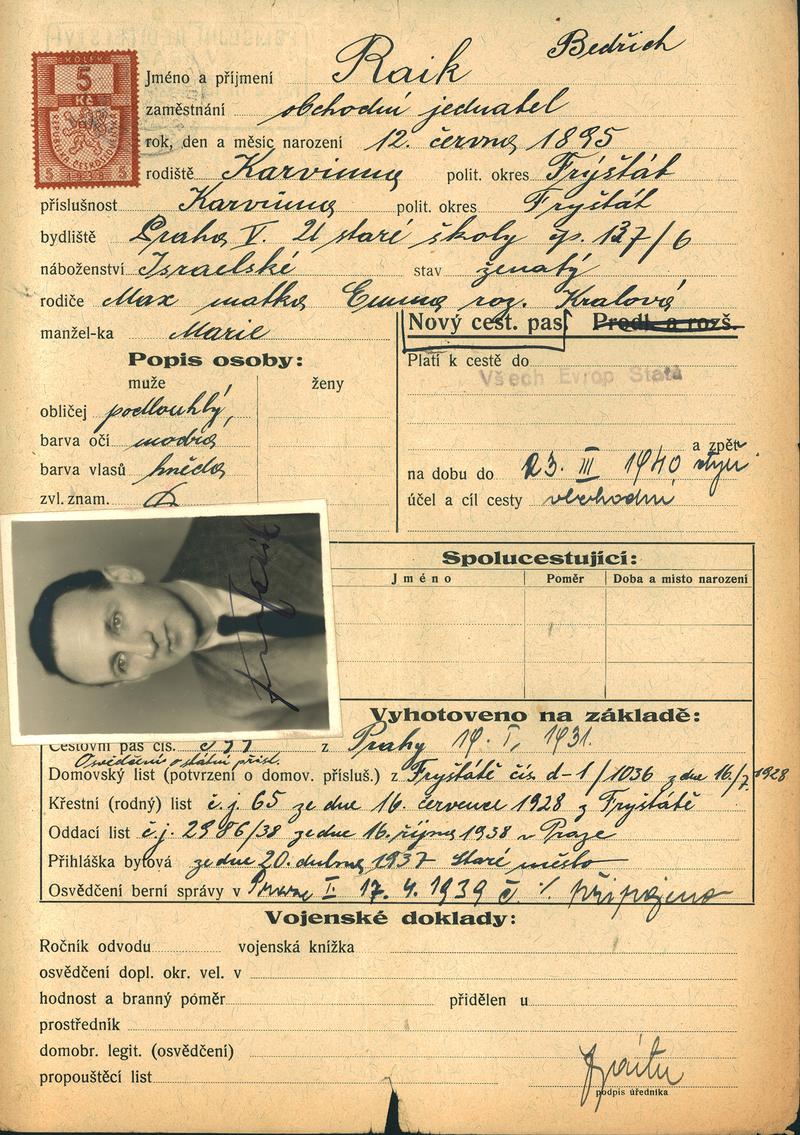 KOLEK
5
Kč
REPUBLIKA ČESKOSLOVENSKÁ
5 1938 5
Bedřich
Jméno a příjmení Raik
zaměstnání obchodní jednatel
rok, den a měsíc narození 12. června 1895
rodiště Karvinná polit. okres Frýštát
příslušnost Karvinná polit. okres Fryštát
bydliště Praha V. U staré školy čp. 137/6
náboženství Israelské stav ženatý
rodiče Max matka Emma roz. Kralová
manžel-ka Marie
Nový cest. pas. Prodl. a rozš.
Popis osoby:
muže ženy
obličej podlouhlý,
barva očí modrá
barva vlasů hnědá
zvl. znam.
Platí k cestě do
Všech Evrop Států
a zpět
na dobu do 23. III 1940
účel a cíl cesty obchodní
Spolucestující:
Jméno Poměr Doba a misto narození
Vyhotoveno na základě:
Cestovní pas čís. z Prahy 1931.
Osvědčení o státní přísl.
Domovský list (potvrzení o domov. přísluš.) z Fryštátě čís. d-1/1036 z dne 16./7. 1928
Křestní (rodný) list č.j. 65 ze dne 16. července 1928 z Fryštátě
Oddací list č.j. 2986/38 ze dne 16. října 1938 v Praze
Přihláška bytová ze dne 20. dubna 1937 Staré město
Osvědčení berní správy v Praze I. 17. 4. 1939 č. % připojeno
Vojenské doklady:
Ročník odvodu vojenská knížka
osvědčení dopl. okr. vel. v
hodnost a branný poměr přidělen u
prostředník
domobr. legit. (osvědčení)
propouštěcí list
podpis úředníka